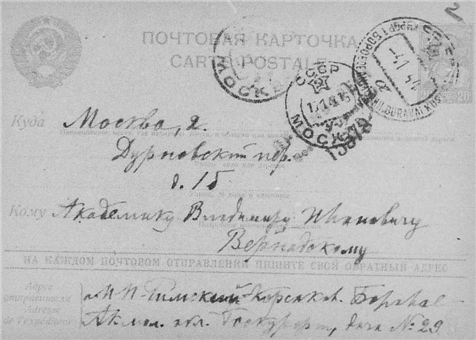 2
ПОЧТОВАЯ КАРТОЧКА
CARTE POSTALE
МОСКВА
МОСКВА
Куда
Москва, 2.
Дурновский пер.
д. 1б
Кому
Академику Владимиру Ивановичу
Вернадскому
НА КАЖДОМ ПОЧТОВОМ ОТПРАВЛЕНИИ ПИШИТЕ СВОЙ ОБРАТНЫЙ АДРЕС
Адрес
отправителя
Adresse
de l'expéditeur
Римский-Корсаков. Боровое
Акмол. обл. Госкурорт, дача № 29